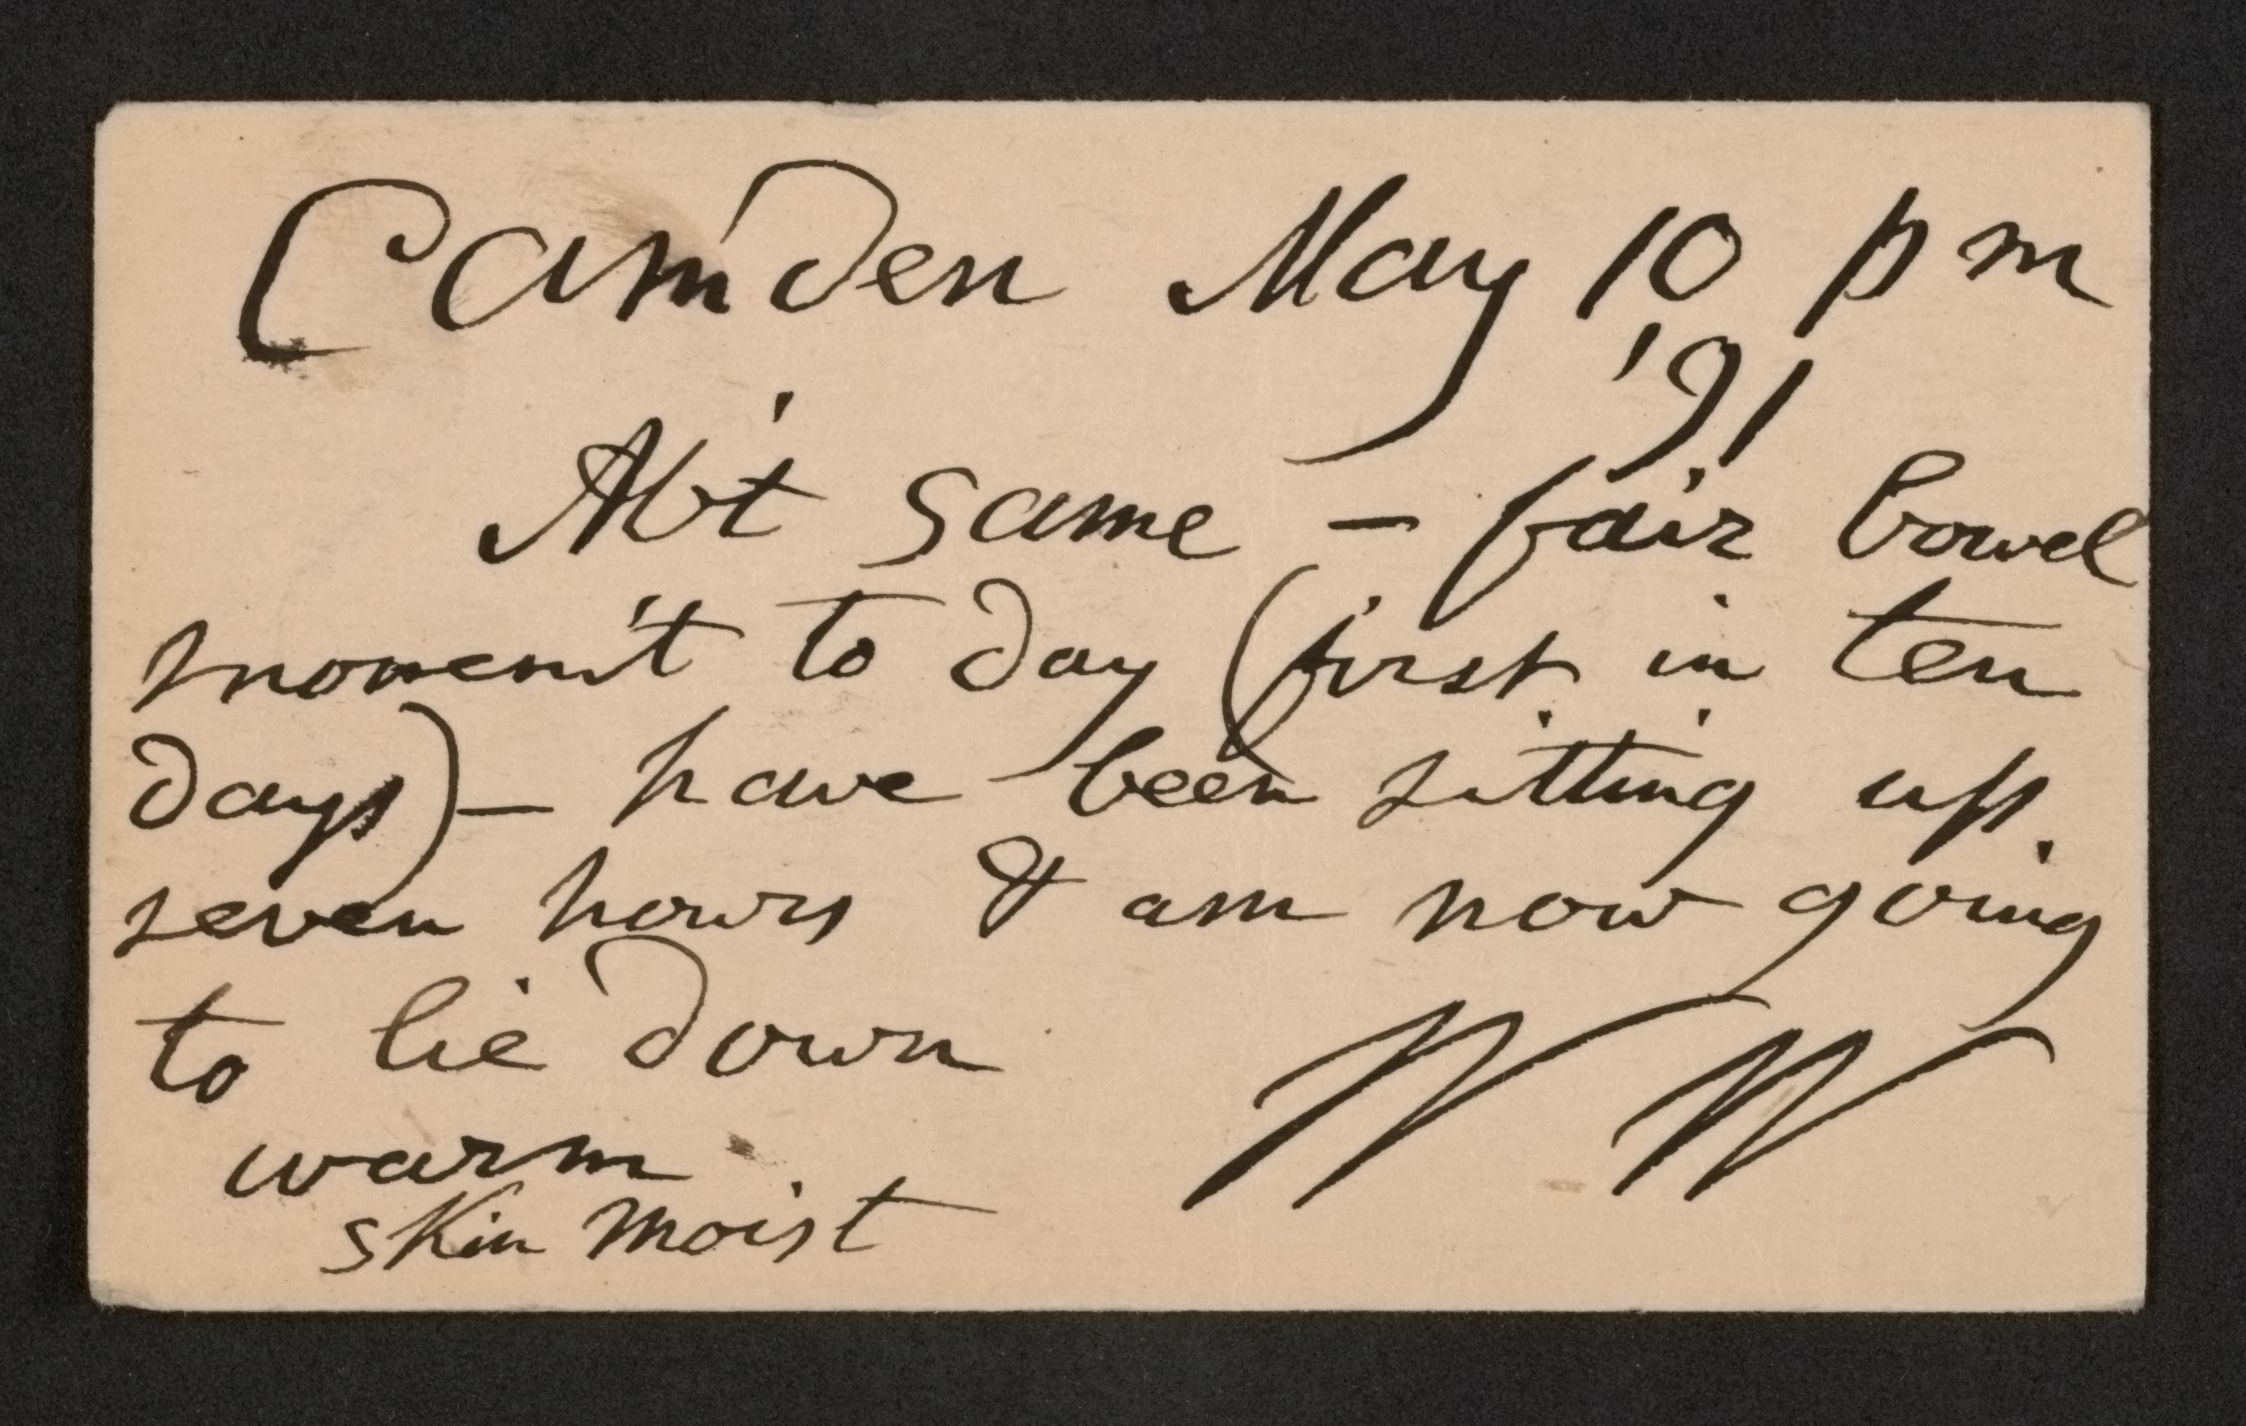 Camden May 10 pm
'91
Ab't same — fair bowel
movem't to day (first in ten
days) — have been sitting up
seven hours & am now going
to lie down
W W
warm
skin moist